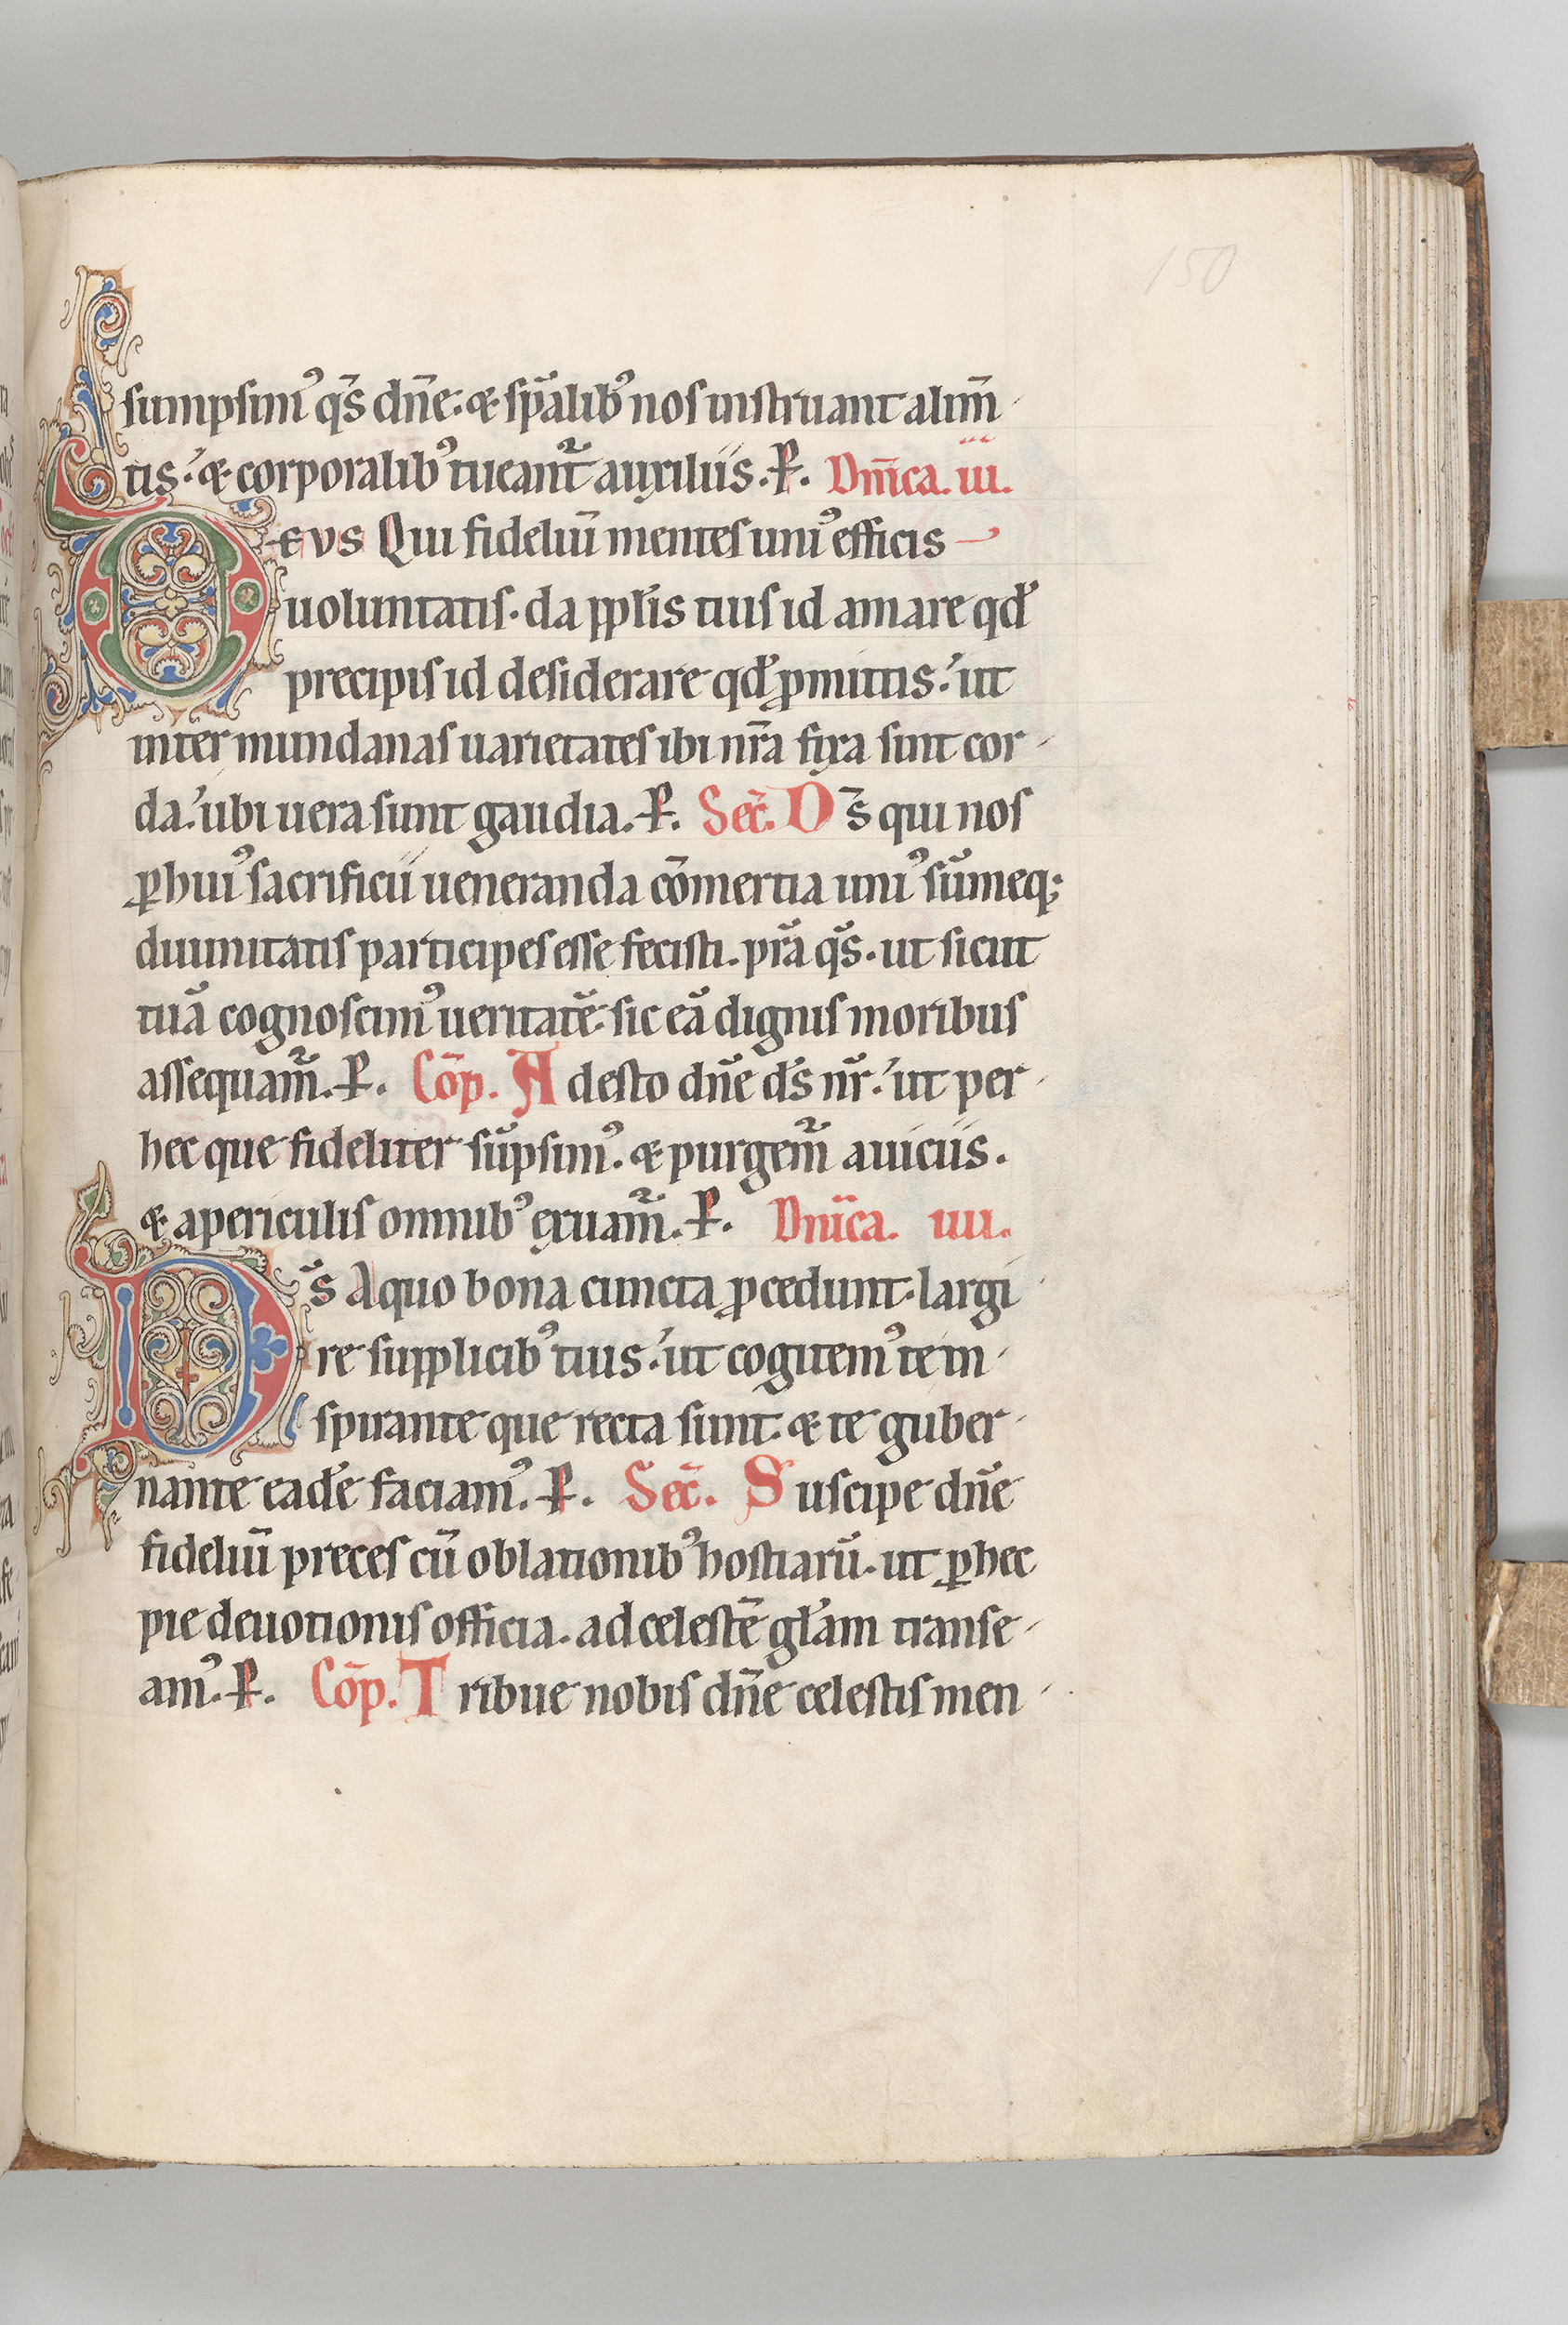 150
sumpsim᾽ qs̄ dn̄e: & sp̄alib᾽ nos instruant alim̄
tis: & corporalib᾽ tueant᷑ auxiliis. P. Dn̄ica. iii.
DEVS Qui fideliū mentes uni᾽ efficis
uoluntatis. da ppl̄is tuis id amare qd̄
precipis id desiderare qd̄ ꝓmittis: ut
inter mundanas uarietates ibi nr̄a fixa sint cor
da: ubi uera sunt gaudia. P. Sec̄. Ds̄ qui nos
ꝑ hui᾽ sacrificii ueneranda cōmertia uni᾽ sūmeq;
diuinitatis participes esse fecisti. pr̄a qs̄. ut sicut
tuā cognoscim᾽ ueritatē. sic eā dignis moribus
assequam᷑. P. Cōp. Adesto dn̄e ds̄ nr̄: ut per
hec que fideliter sūpsim᾽. & purgem᷑ auiciis.
& apericulis omnib᾽ exuam᷑. P. Dn̄ica. iiii.
Ds̄ A quo bona cuncta ꝓcedunt. largi
re supplicib᾽ tuis: ut cogitem᾽ te in
spirante que recta sunt. & te guber
nante eadē faciam᾽. P. Sec̄. Suscipe dn̄e
fideliū preces cū oblationib᾽ hostiarū. ut ꝑ hec
pie deuotionis officia. ad celestē gl̄am transe
am᾽. P. Cōp. Tribue nobis dn̄e celestis men